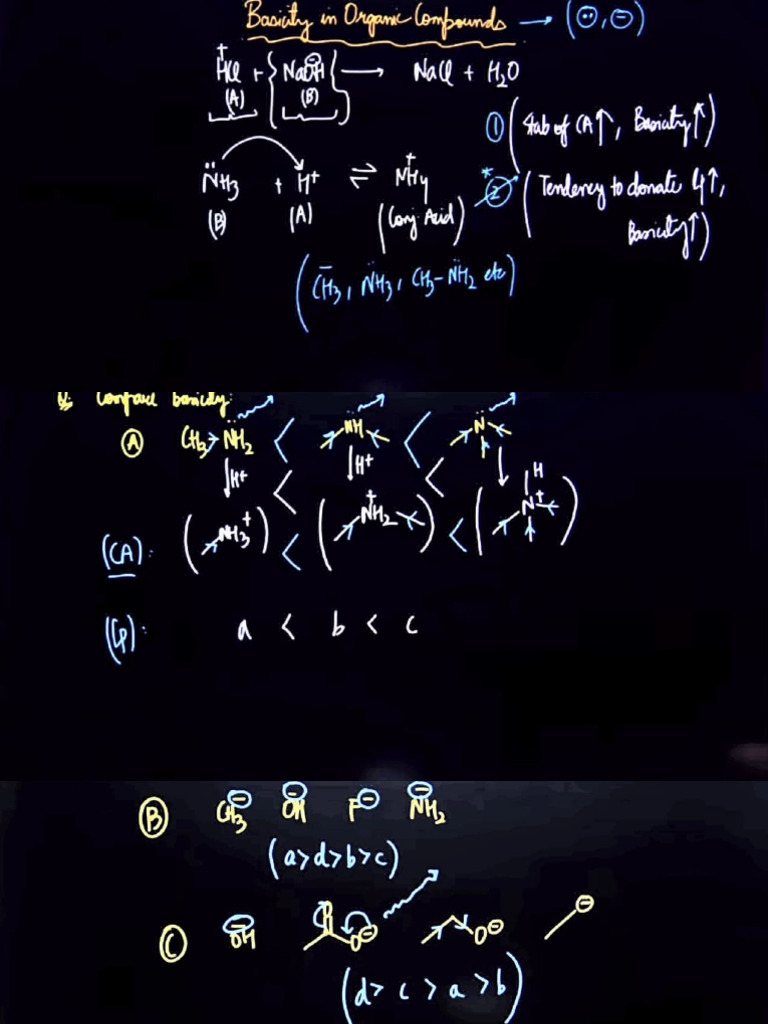 Basicity in Organic Compounds → (⊖̈, ⊖)
H⁺Cl + {NaOH⊖} → NaCl + H₂O
(A) (B)
① (Stab of CA↑, Basicity↑)
N̈H₃ + H⁺ ⇌ N⁺H₄
(B) (A) (Conj Acid)
*② (Tendency to donate lp↑,
Basicity↑)
(C̄H₃, N̈H₃, CH₃-N̈H₂ etc)
Q: Compare basicity:
Ⓐ CH₃→N̈H₂ < N̈H < N̈
↓H⁺ < ↓H⁺ < ↓ H
(CA): (NH₃⁺) < (N⁺H₂) < (N⁺)
(lp): a < b < c
Ⓑ CH₃⊖ OH⊖ F⊖ NH₂⊖
(a>d>b>c)
Ⓒ OH⊖ O O⊖ O⊖ ⊖
(d> c > a > b)